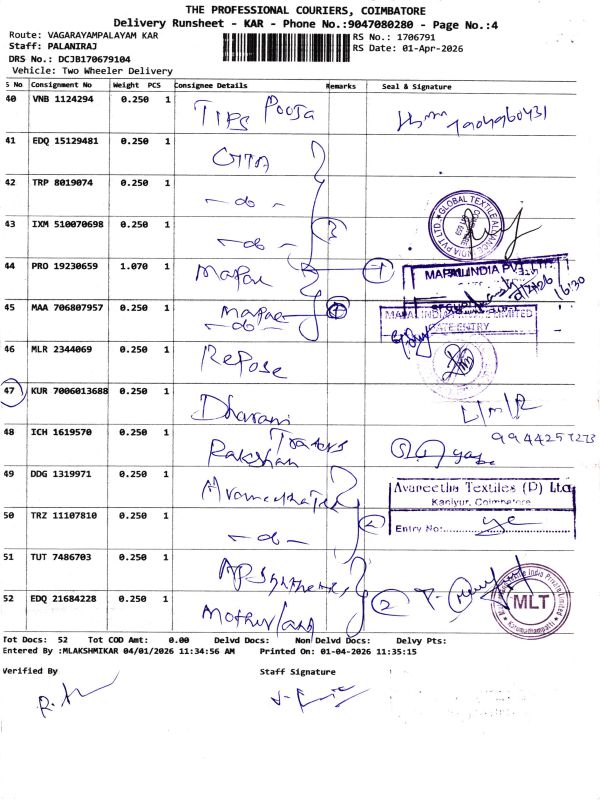 THE PROFESSIONAL COURIERS, COIMBATORE
Delivery Runsheet - KAR - Phone No.:9047080280 - Page No.:4
Route: VAGARAYAMPALAYAM KAR
RS No.: 1706791
Staff: PALANIRAJ
RS Date: 01-Apr-2026
DRS No.: DCJB170679104
Vehicle: Two Wheeler Delivery
S No Consignment No Weight PCS Consignee Details Remarks Seal & Signature
40 VNB 1124294 0.250 1 TIPS Pooja 7904960431
41 EDQ 15129481 0.250 1
42 TRP 8019074 0.250 1 -do-
43 IXM 510070698 0.250 1 -do- 3
GLOBAL TEXTILE ALLIANCE INDIA PVT LTD.
44 PRO 19230659 1.070 1 Mapal 1
MAPAL INDIA PVT. LTD.
16:30
45 MAA 706807957 0.250 1 Mapal
-do-
MAPAL INDIA PRIVATE LIMITED
GATE ENTRY
46 MLR 2344069 0.250 1 Repose
47 KUR 7006013688 0.250 1 Dharani Traders
9944257273
48 ICH 1619570 0.250 1 Rakshan
49 DDG 1319971 0.250 1
Avaneetha Textiles (P) Ltd
Kaniyur, Coimbatore
Entry No:
50 TRZ 11107810 0.250 1 -do- 2
51 TUT 7486703 0.250 1
52 EDQ 21684228 0.250 1 2
MLT
Tot Docs: 52 Tot COD Amt: 0.00 Delvd Docs: Non Delvd Docs: Delvy Pts:
Entered By :MLAKSHMIKAR 04/01/2026 11:34:56 AM Printed On: 01-04-2026 11:35:15
Verified By Staff Signature